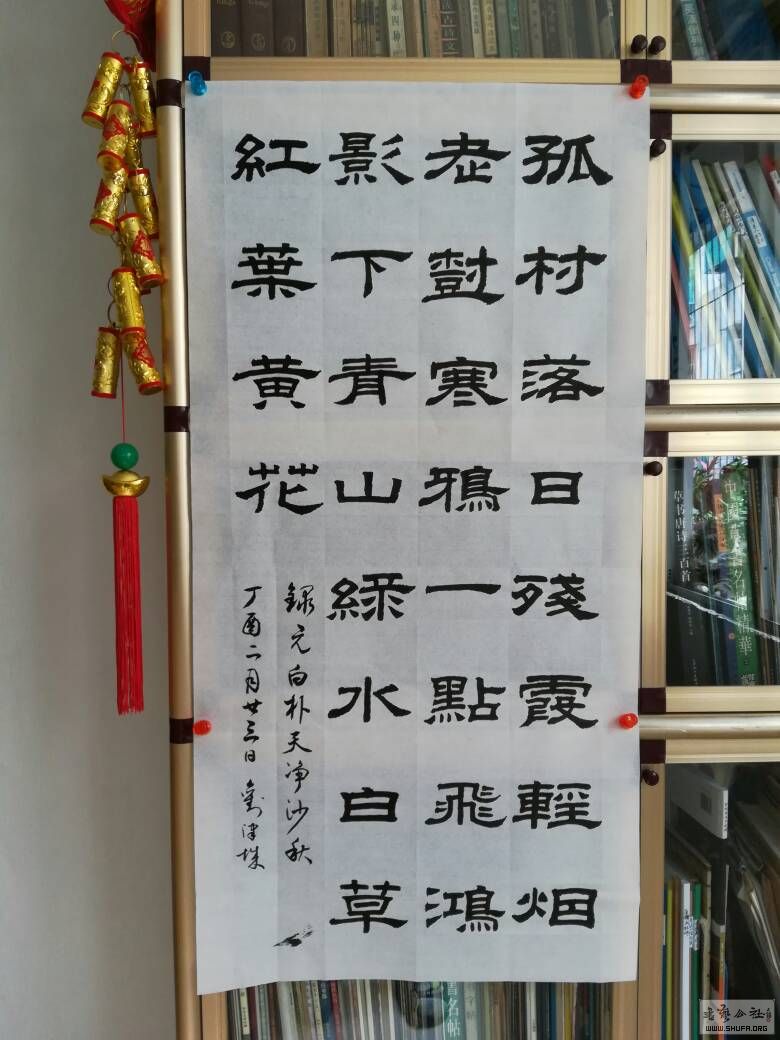 孤村落日殘霞輕烟
老樹寒鴉一點飛鴻
影下青山綠水白草
紅葉黃花
錄元白朴天净沙秋
丁酉二月廿三日
草书唐诗三百首
書藝公社
WWW.SHUFA.ORG